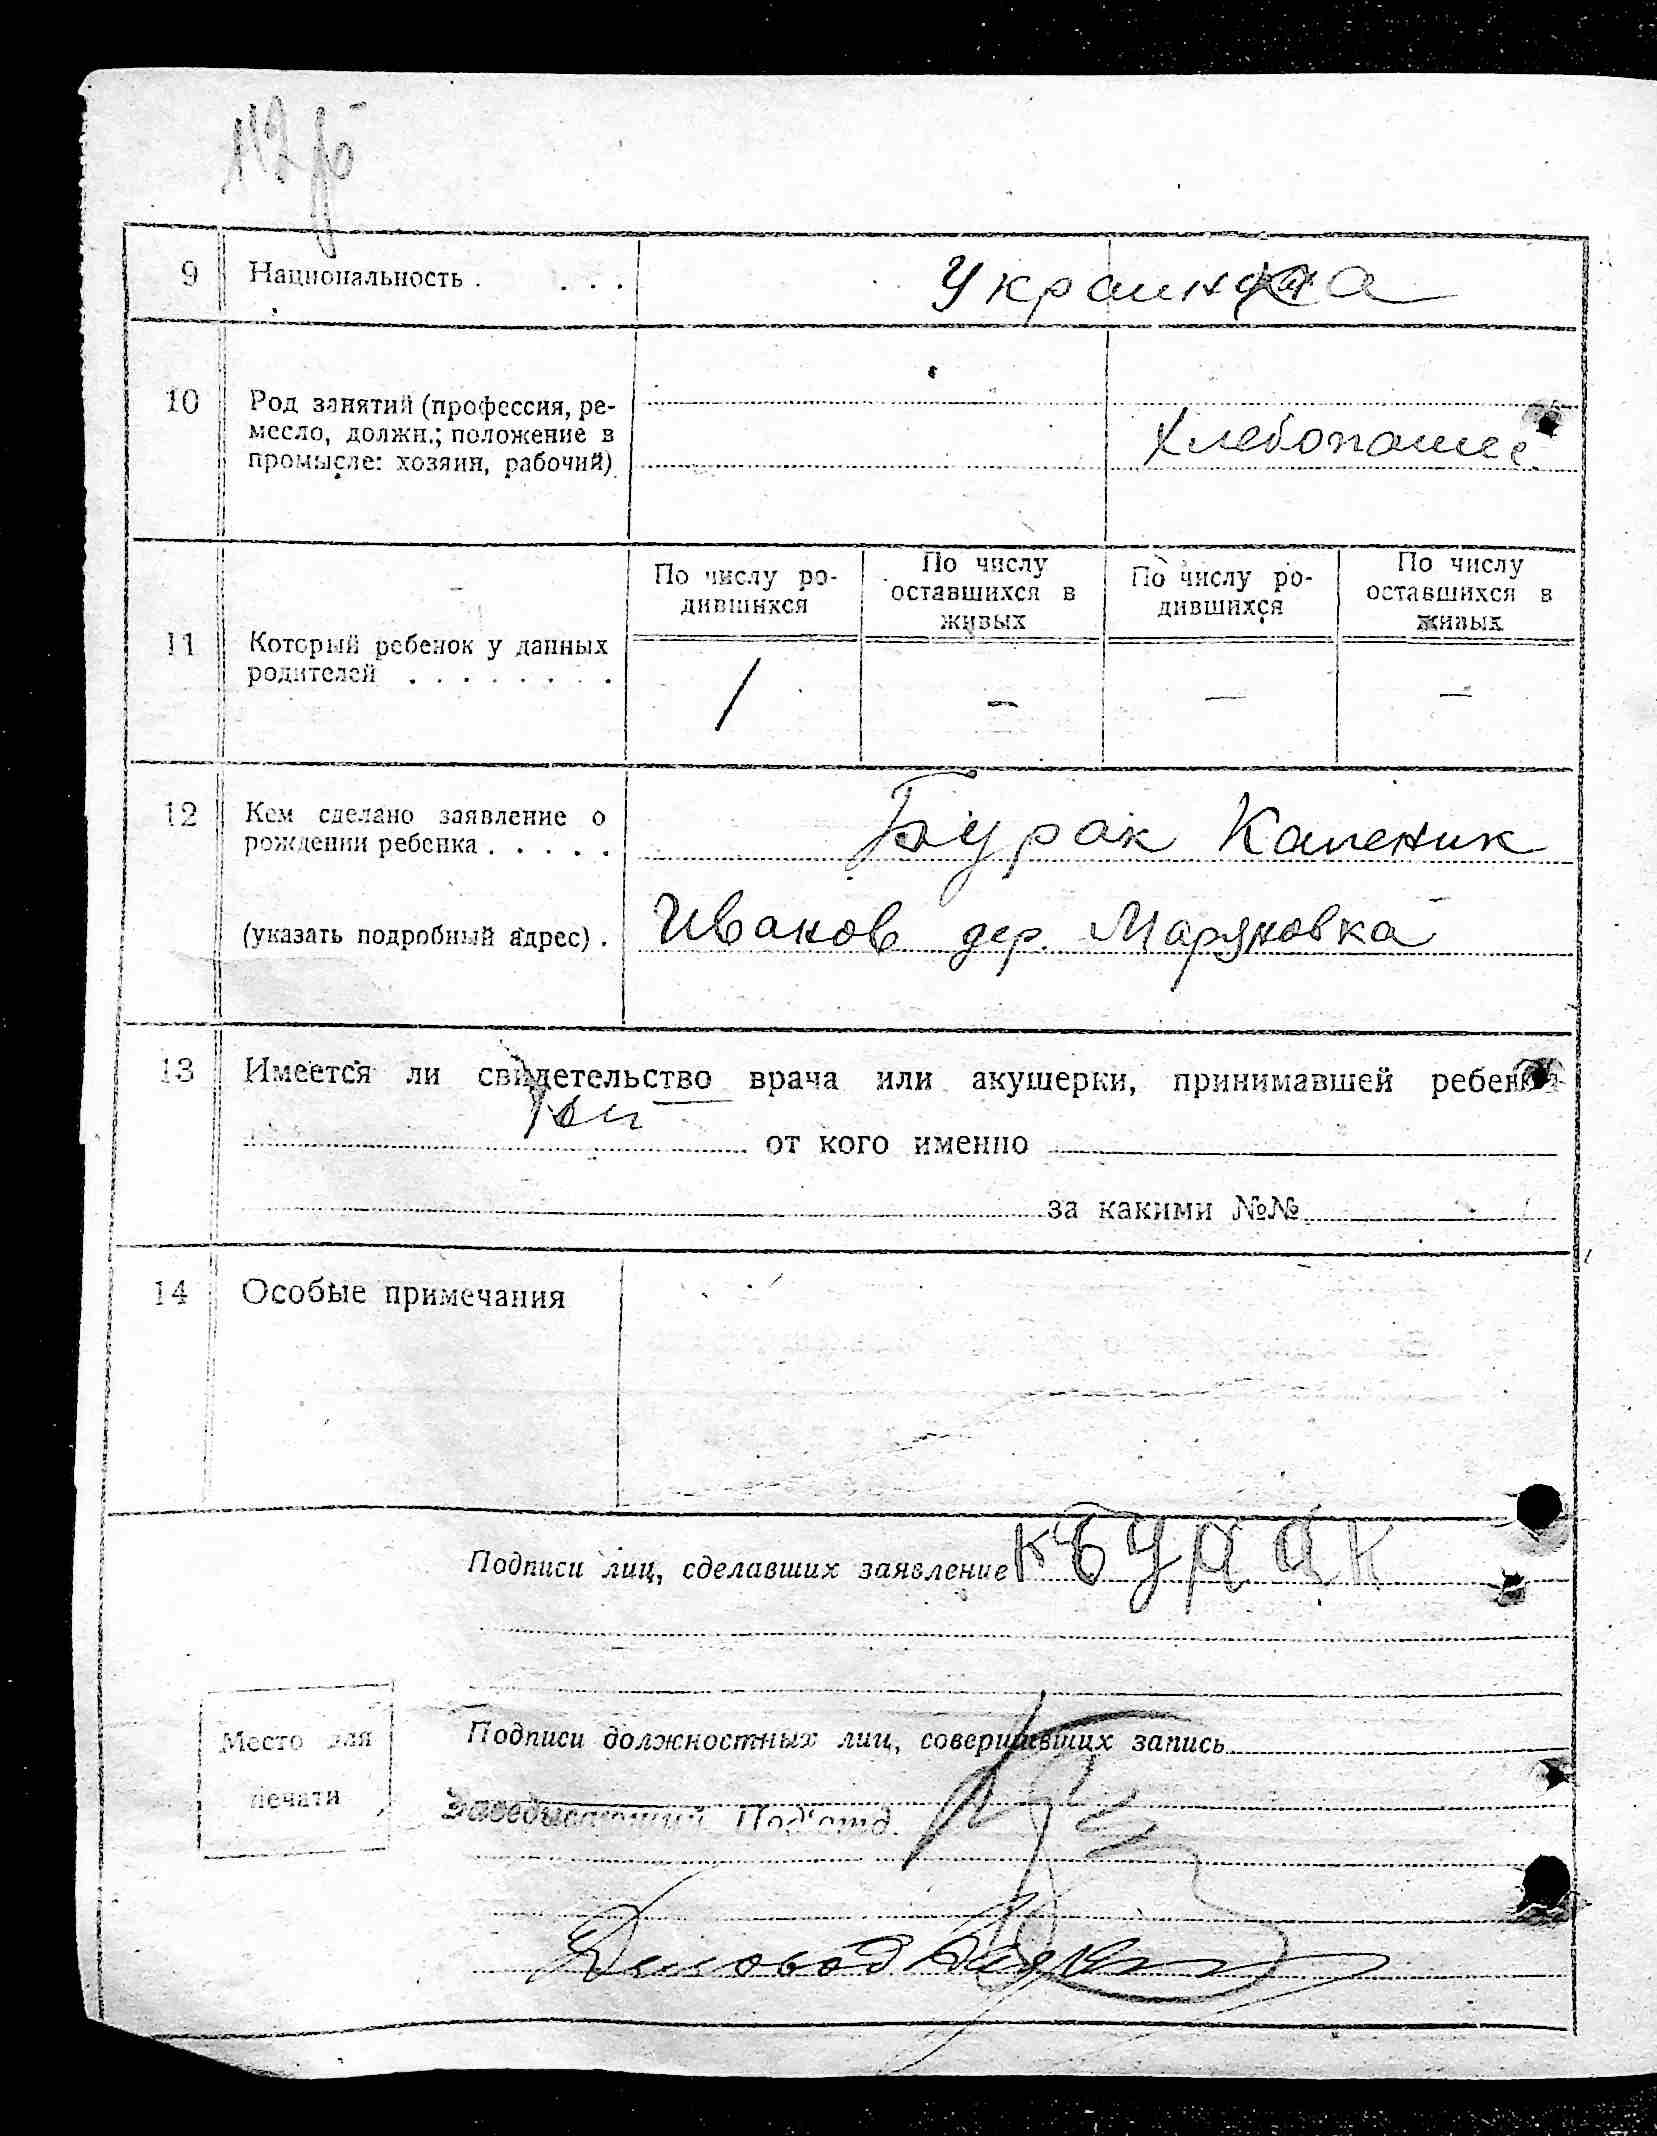 9 Национальность . . . . Украинка
10 Род занятий (профессия, ре-
месло, должн.; положение в
промысле: хозяин, рабочий)
Хлебопашец
По числу ро-
дившихся
По числу
оставшихся в
живых
По числу ро-
дившихся
По числу
оставшихся в
живых
11 Который ребенок у данных
родителей . . . . . . . .
1 – – –
12 Кем сделано заявление о
рождении ребенка . . . . .
Бурак Каленик
(указать подробный адрес) .
Иванов дер. Маряновка
13 Имеется ли свидетельство врача или акушерки, принимавшей ребенка
от кого именно
за какими №№
14 Особые примечания
Подписи лиц, сделавших заявление К Бурак
Место для
печати
Подписи должностных лиц, совершивших запись
Заведывающий Под'отд.
Деловод